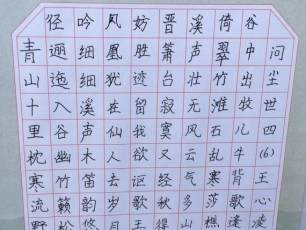 问尘世四(6)王心凌
谷中出牧儿牛背歌逢
倚翠竹滩石乱寒莎樵
溪声壮无风云气多
晋萧台寂寞又经秋
妨胜迹留我欲讴吟
凤凰犹在仙人去岁月
吟细细溪声木笛韵悠
径逦迤入谷幽竹籁松
青山十里枕寒流野